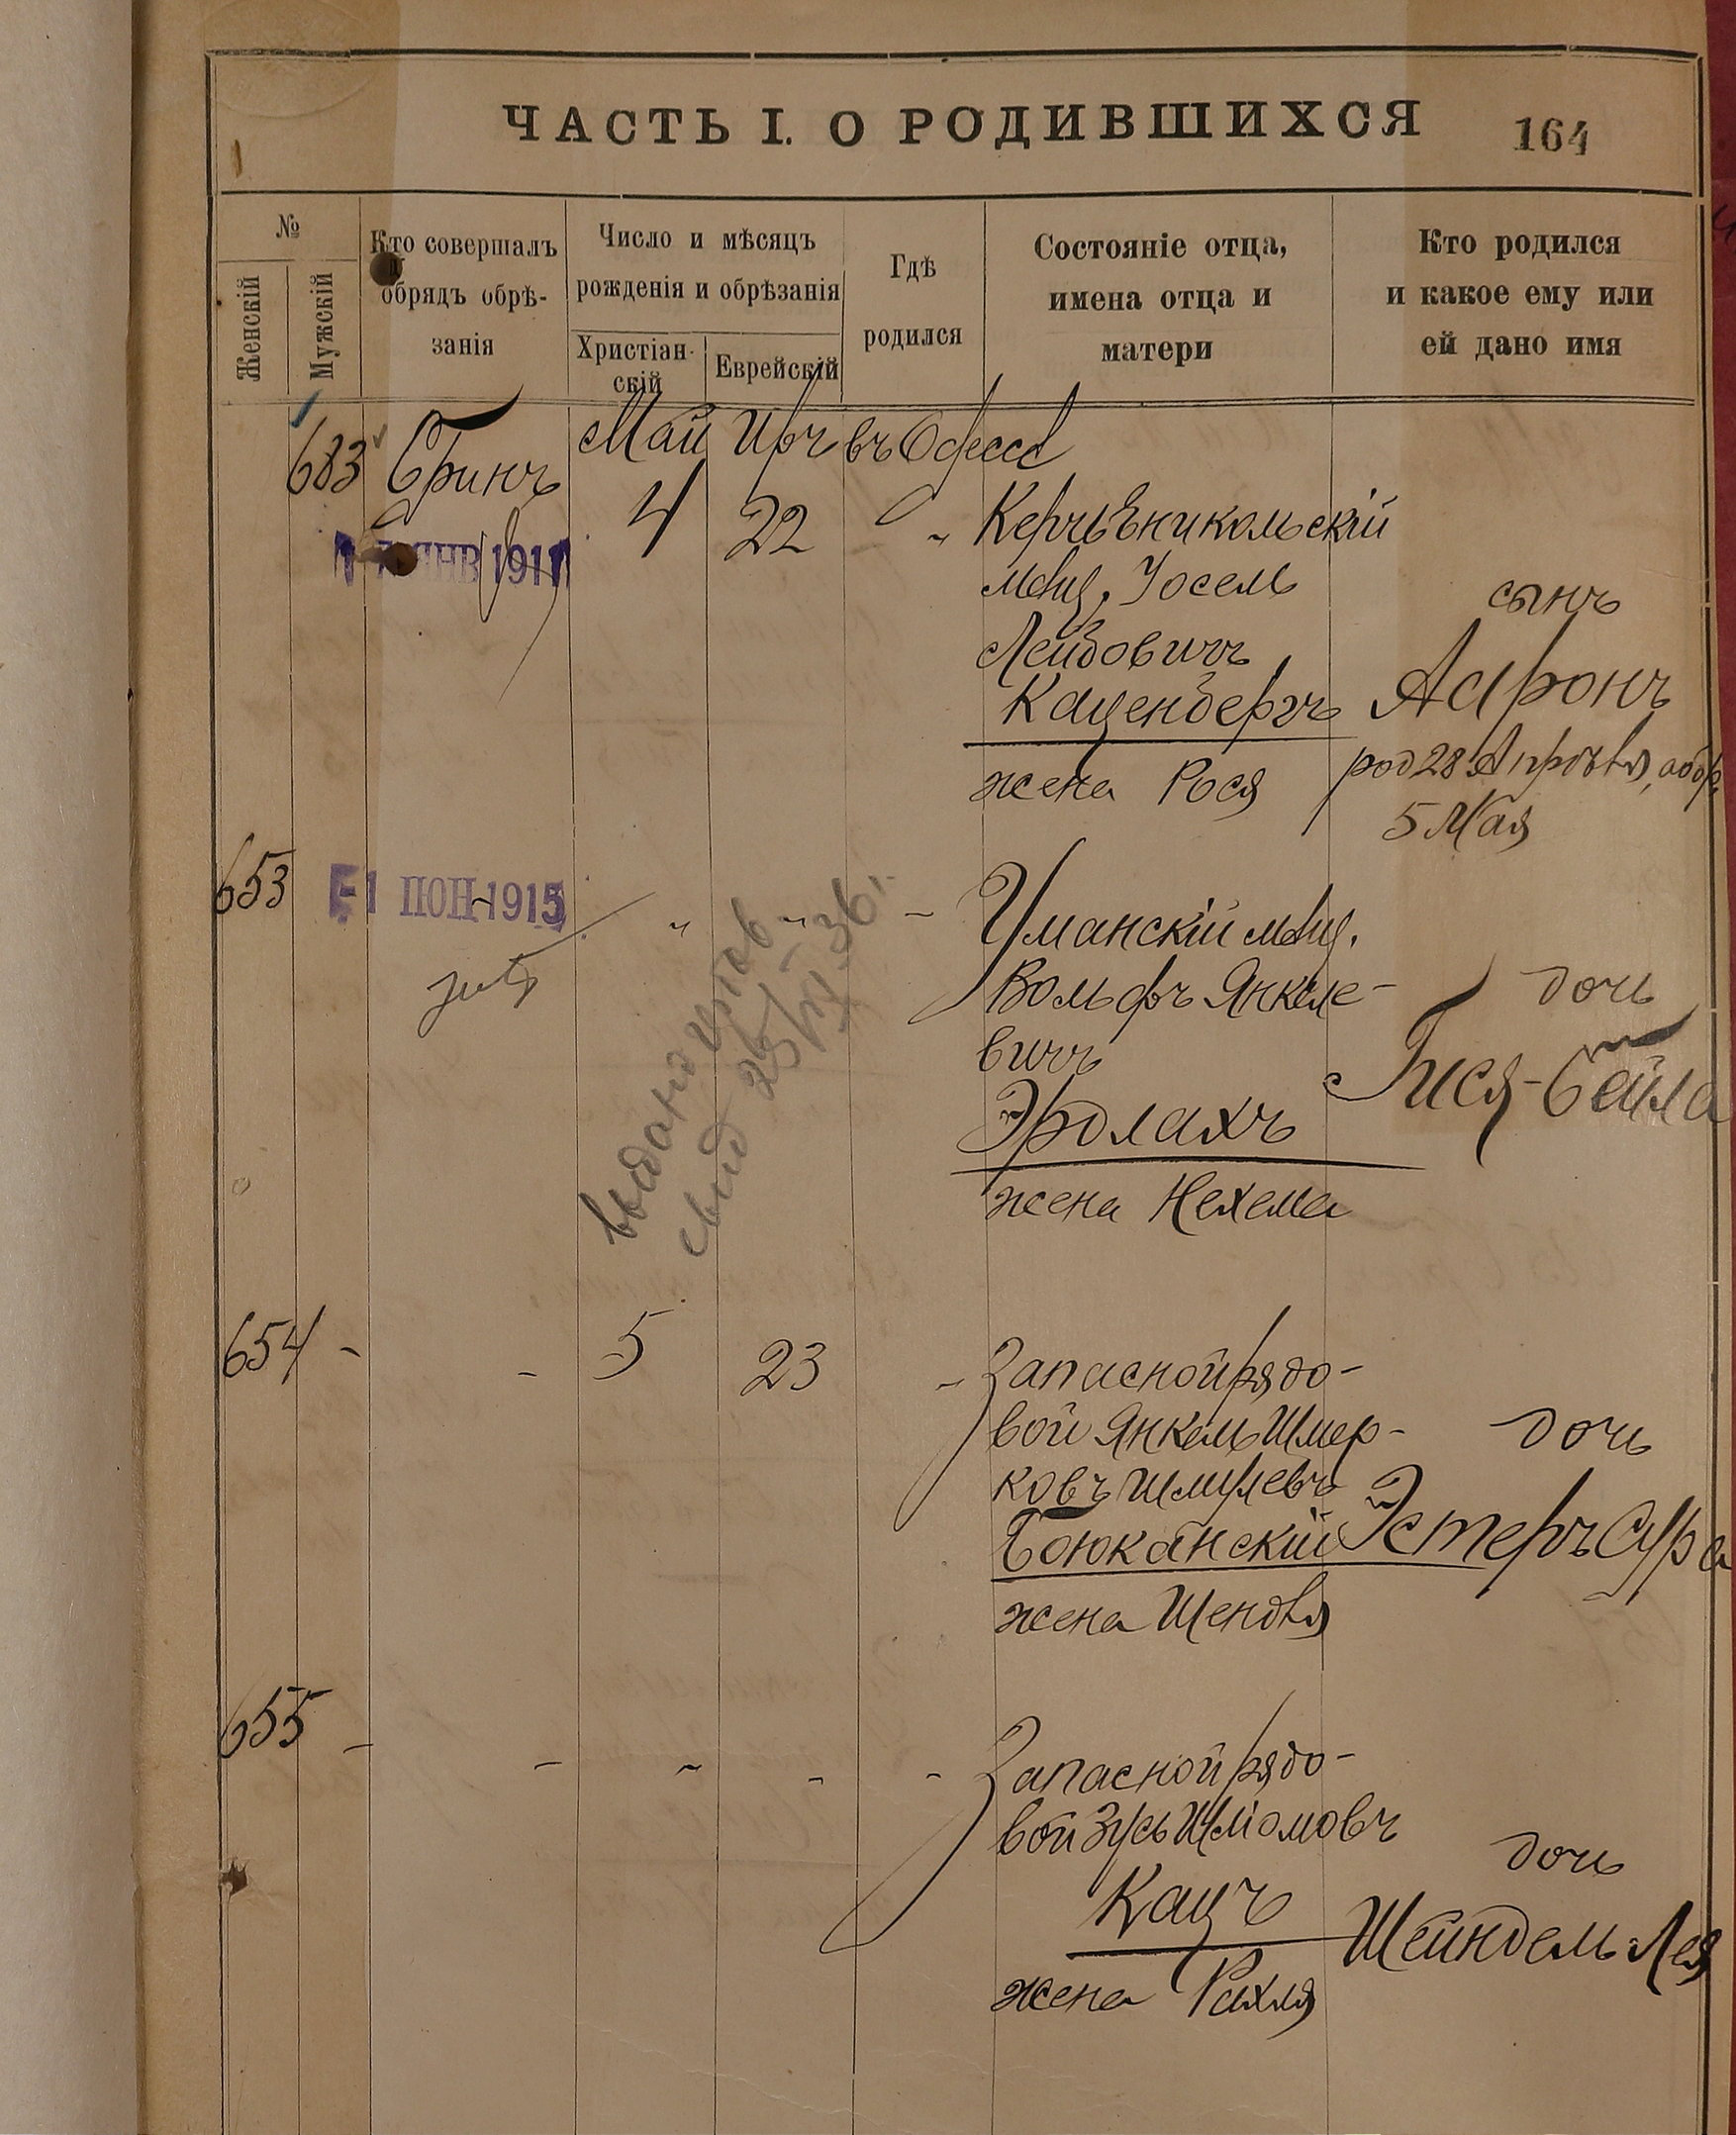 ЧАСТЬ I. О РОДИВШИХСЯ
164
№
Женскій
Мужскій
Кто совершалъ
обрядъ обрѣ-
занія
Число и мѣсяцъ
рожденія и обрѣзанія
Христіан-
скій
Еврейскій
Гдѣ
родился
Состояніе отца,
имена отца и
матери
Кто родился
и какое ему или
ей дано имя
683
Май
въ Одессѣ
4
22
"
Керчь Еникольскій
мѣщ. Іосель
Лейбовичъ
Каценбергъ
жена Рося
сынъ
Ааронъ
род 28 Апрѣля, обр.
5 Мая
ЯНВ 1911
653
1 ІЮН 1915
"
"
-
Уманскій мѣщ.
Вольфъ Янкеле-
вичъ
Эрлахъ
жена Нехема
дочь
Гися-Бейла
выдано
свид
36г.
654
-
-
5
23
-
Запасной рядо-
вой Янкель Шмер-
ковъ Шмулевъ
Боюканскій
жена Шендля
дочь
Эстеръ Сура
655
-
-
"
-
-
Запасной рядо-
вой Зусь Шліомовъ
Кацъ
жена Рахля
дочь
Шейндель Лея